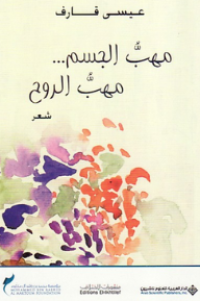 عيسى فارف
مهبُّ الجسم...
مهبُّ الروح
شعر
منشورات الاختلاف
Editions El-Ikhtilef
الدار العربية للعلوم ناشرون
Arab Scientific Publishers, Inc.